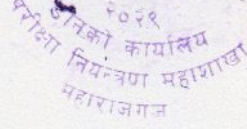 २०२९
उनिको कार्यालय
परीक्षा नियन्त्रण महाशाखा
महाराजगंज